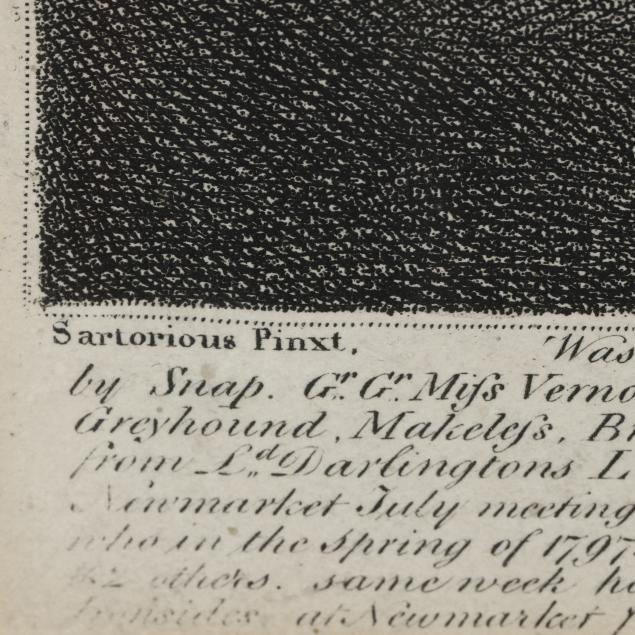 Sartorious Pinxt.
Was
by Snap. Gr. Gr. Miſs Verno
Greyhound, Makeleſs, Br
from Ld. Darlingtons L
Newmarket July meeting
who in the Spring of 1797
others. same week he
Ironsides at Newmarket